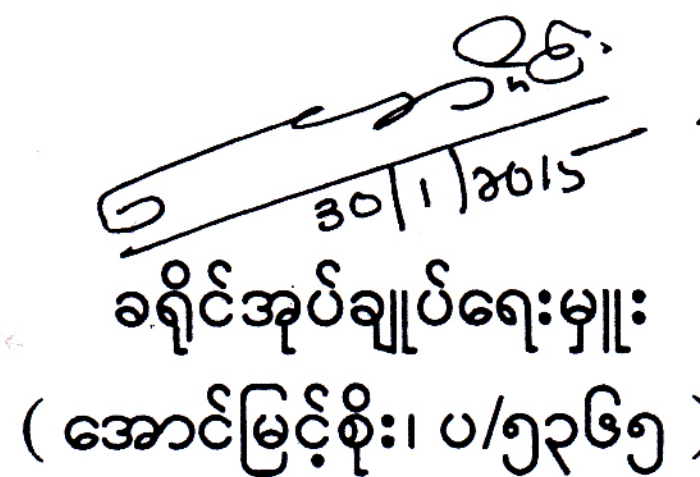 30/1/2015
ခရိုင်အုပ်ချုပ်ရေးမှူး
( အောင်မြင့်စိုး၊ ပ/၅၃၆၅ )